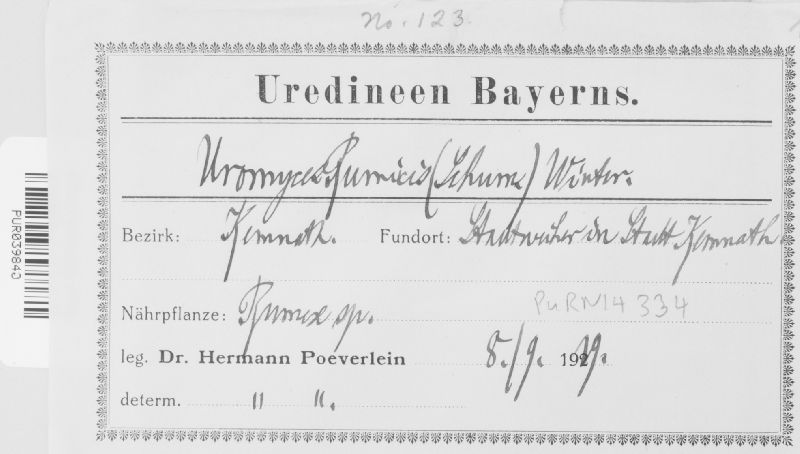 No. 123.
Uredineen Bayerns.
Uromyces Rumicis (Schum.) Winter.
Bezirk: Kemnath. Fundort: Stadtweiher in Stadt Kemnath
Nährpflanze: Rumex sp.
PURN14334
leg. Dr. Hermann Poeverlein 8./9. 1929.
determ. " ".
PUR039843